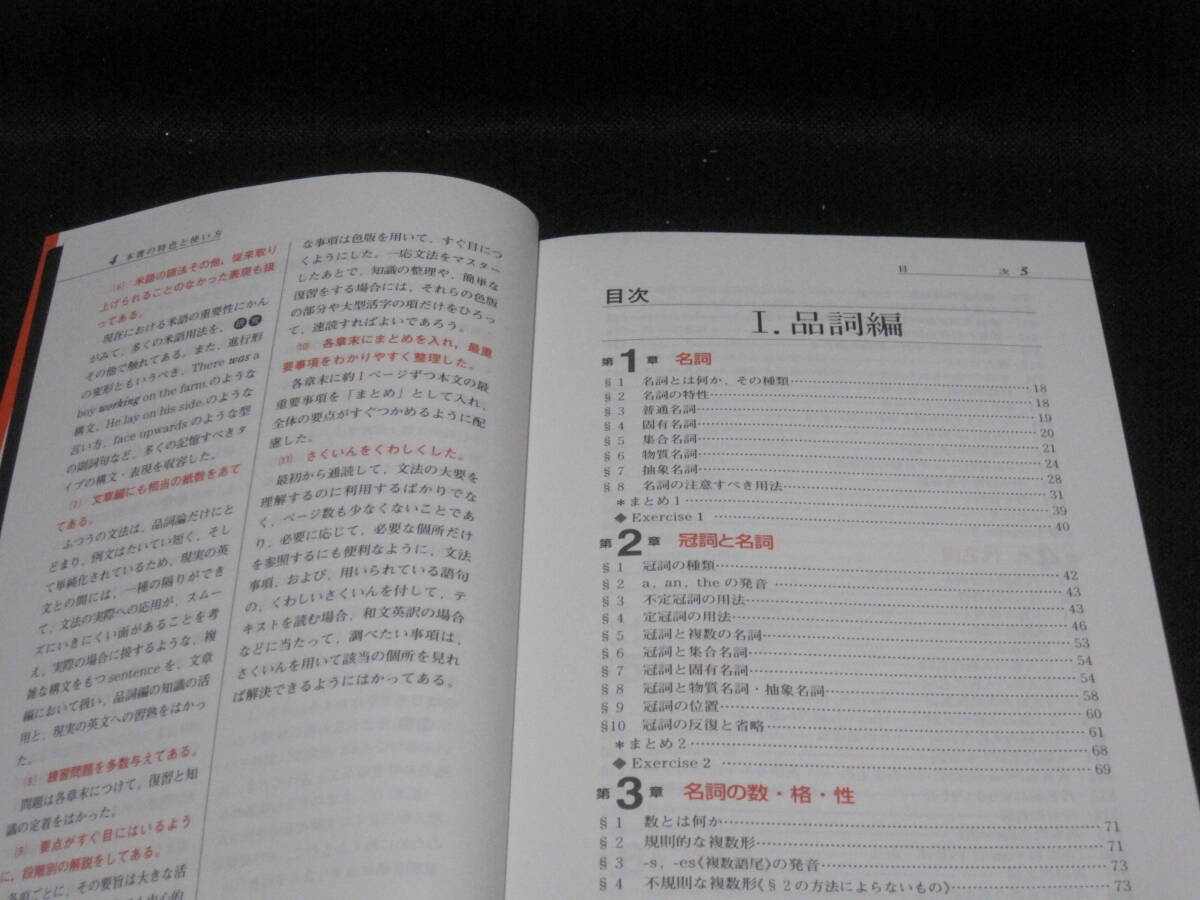 4 本書の特色と使い方
(6) 米語の語法その他，従来取り
上げられることのなかった表現も扱
ってある。
現在における米語の重要性にかん
がみて，多くの米語用法を，研究
その他で触れてある。また，進行形
の変形ともいうべき，There was a
boy working on the farm.のような
構文，He lay on his side.のような
言い方，face upwardsのような型
の副詞句など，多くの記憶すべきタ
イプの構文・表現を収容した。
(7) 文章編にも相当の紙数をあて
てある。
ふつうの文法は，品詞論だけにと
どまり，例文はたいてい短く，そし
て単純化されているため，現実の英
文との間には，一種の隔りができ
て，文法の実際への応用が，スムー
ズにいきにくい面があることを考
え，実際の場合に接するような，複
雑な構文をもつsentenceを，文章
編において扱い，品詞編の知識の活
用と，現実の英文への習熟をはかっ
た。
(8) 練習問題を多数与えてある。
問題は各章末につけて，復習と知
識の定着をはかった。
(9) 要点がすぐ目にはいるよう
に，段階別の解説をしてある。
各項ごとに，その要旨は大きな活
な事項は色版を用いて，すぐ目につ
くようにした。一応文法をマスター
したあとで，知識の整理や，簡単な
復習をする場合には，それらの色版
の部分や大型活字の項だけをひろっ
て，速読すればよいであろう。
(10) 各章末にまとめを入れ，最重
要事項をわかりやすく整理した。
各章末に約1ページずつ本文の最
重要事項を「まとめ」として入れ，
全体の要点がすぐつかめるように配
慮した。
(11) さくいんをくわしくした。
最初から通読して，文法の大要を
理解するのに利用するばかりでな
く，ページ数も少なくないことであ
り，必要に応じて，必要な個所だけ
を参照するにも便利なように，文法
事項，および，用いられている語句
の，くわしいさくいんを付して，テ
キストを読む場合，和文英訳の場合
などに当たって，調べたい事項は，
さくいんを用いて該当の個所を見れ
ば解決できるようにはかってある。
目 次 5
目次
I. 品詞編
第1章 名詞
§1 名詞とは何か，その種類……18
§2 名詞の特性……18
§3 普通名詞……19
§4 固有名詞……20
§5 集合名詞……21
§6 物質名詞……24
§7 抽象名詞……28
§8 名詞の注意すべき用法……31
＊まとめ1……39
◆Exercise 1……40
第2章 冠詞と名詞
§1 冠詞の種類……42
§2 a，an，theの発音……43
§3 不定冠詞の用法……43
§4 定冠詞の用法……46
§5 冠詞と複数の名詞……53
§6 冠詞と集合名詞……54
§7 冠詞と固有名詞……54
§8 冠詞と物質名詞・抽象名詞……58
§9 冠詞の位置……60
§10 冠詞の反復と省略……61
＊まとめ2……68
◆Exercise 2……69
第3章 名詞の数・格・性
§1 数とは何か……71
§2 規則的な複数形……71
§3 -s，-es《複数語尾》の発音……73
§4 不規則な複数形《§2の方法によらないもの》……73